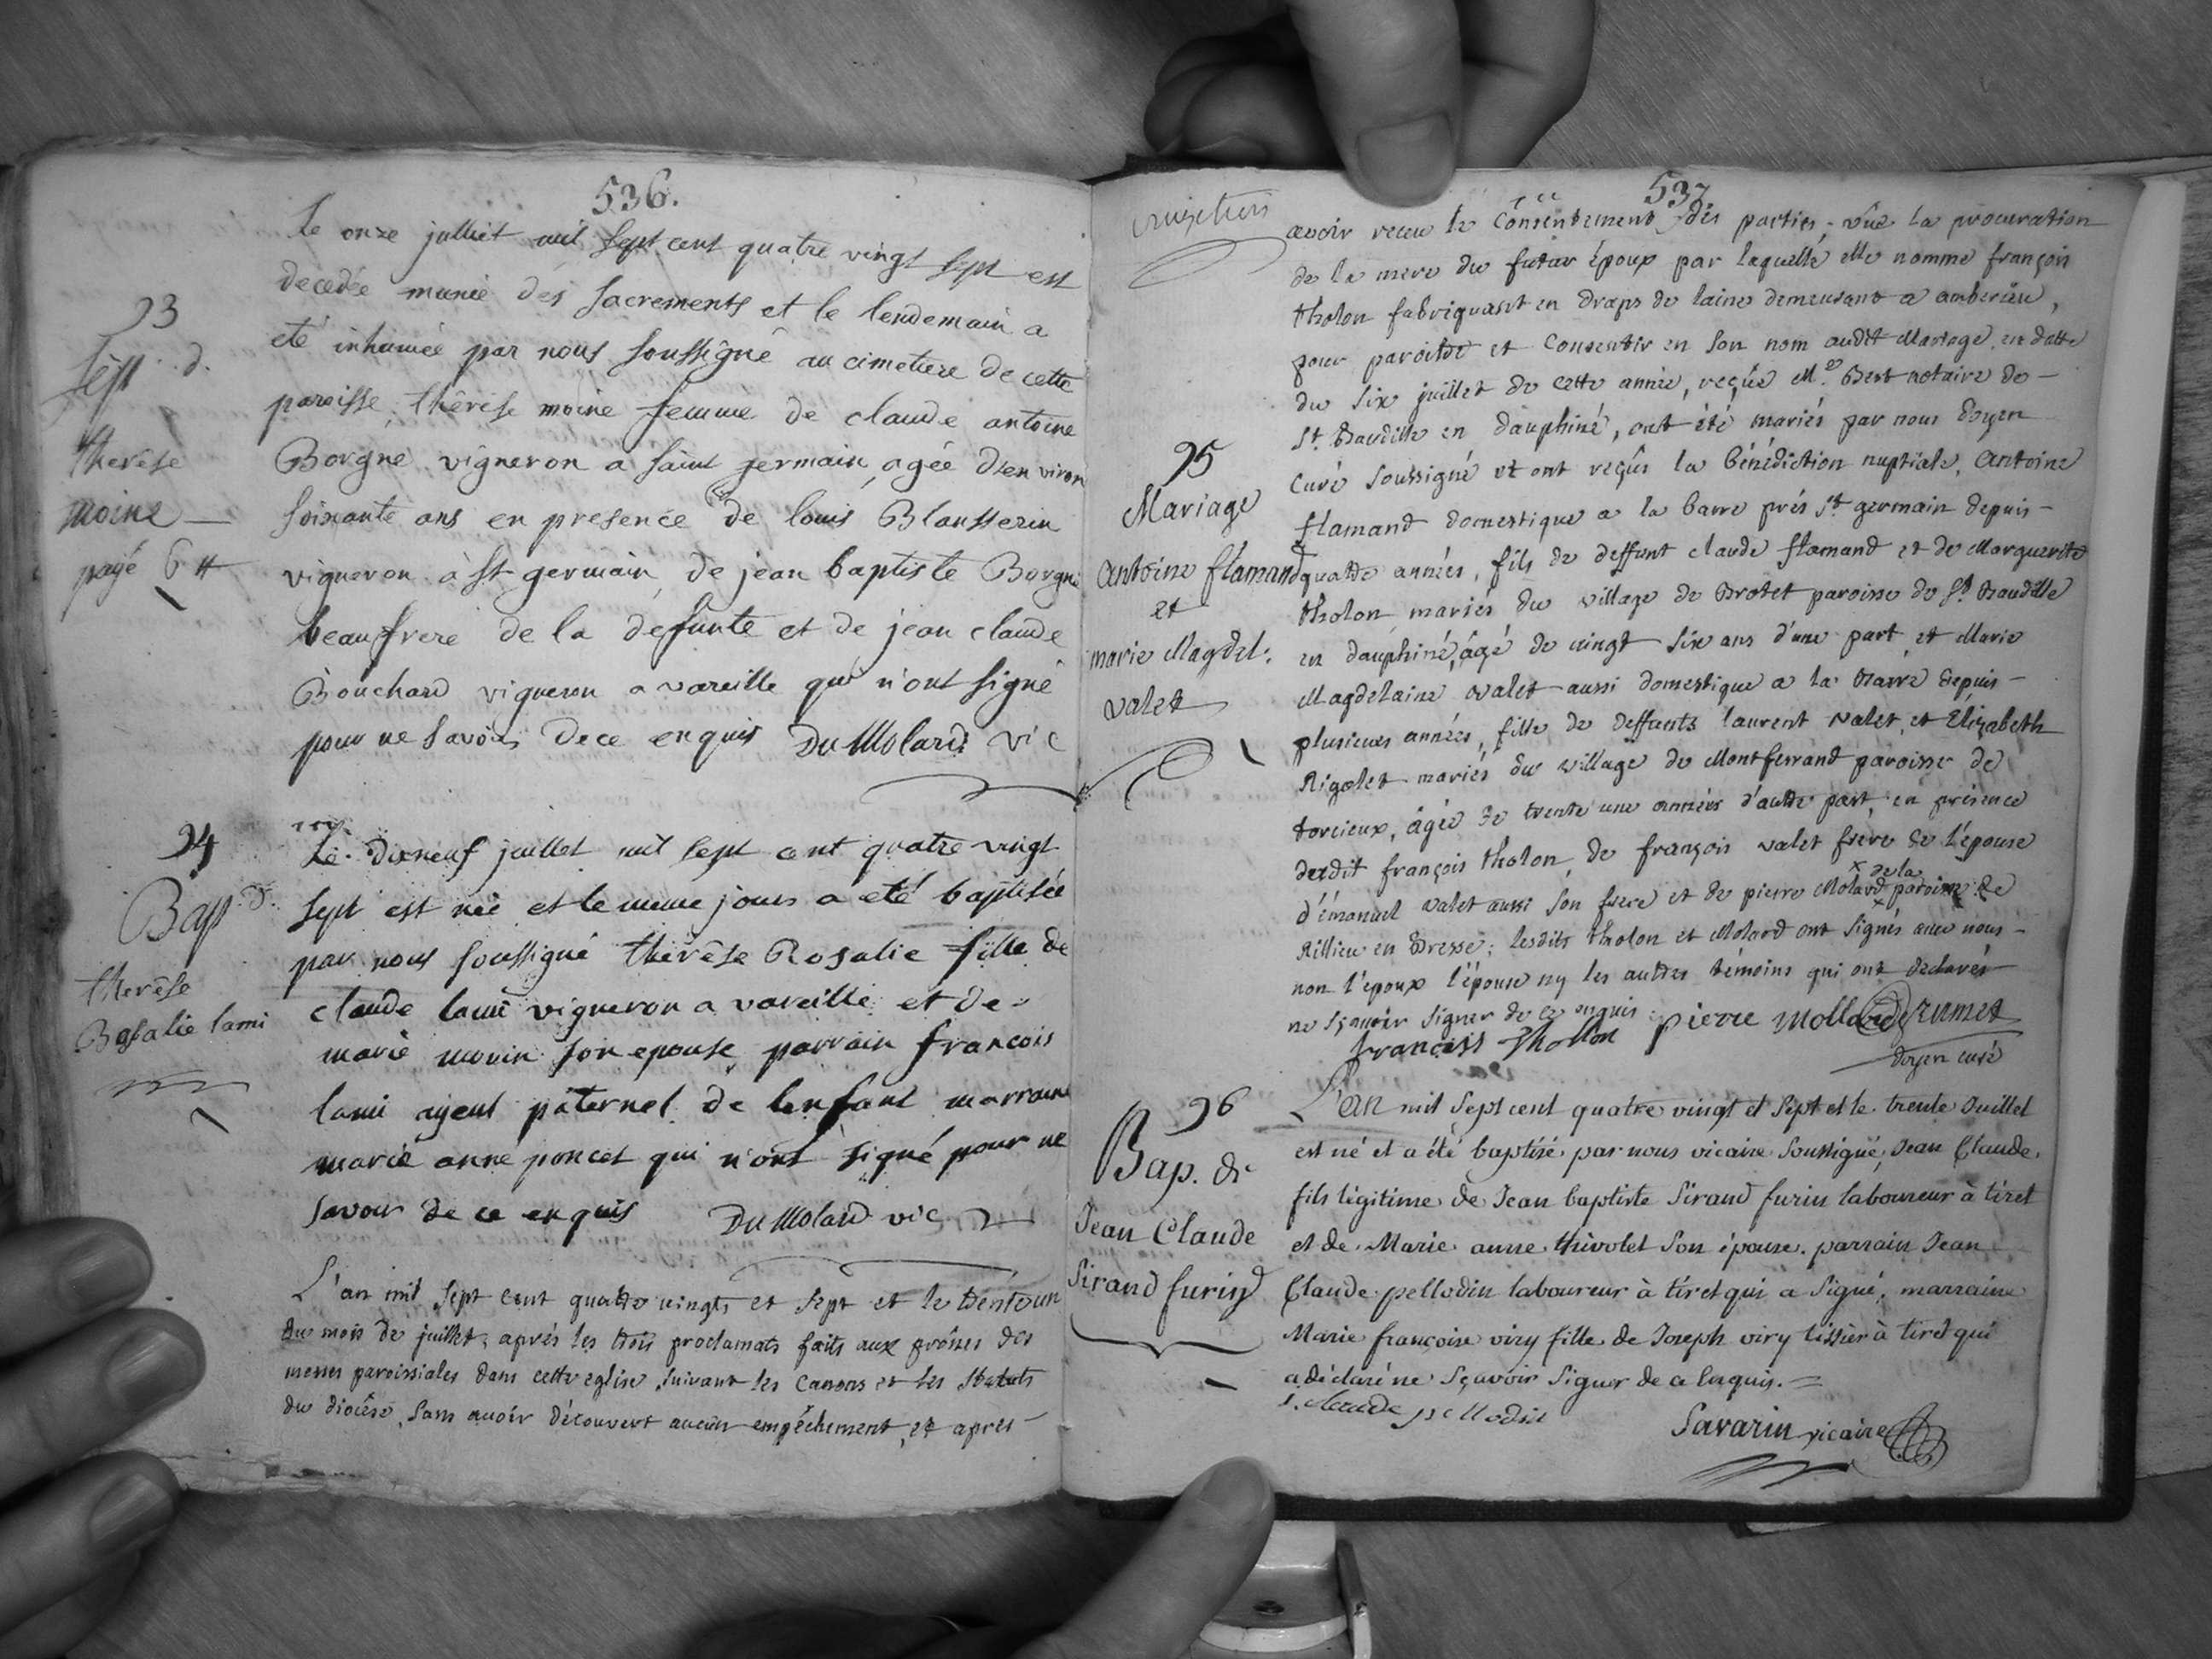 536.
Le onze julliet mil sept cent quatre vingt sept est
decedée munie des sacrements et le lendemain a
eté inhumée par nous soussigné au cimetiere de cette
paroisse thérèse moine femme de claude antoine
Borgne vigneron a saint germain, agée d'environ
soixante ans en presence de louis Blansserin
vigneron à st germain, de jean baptiste Borgne
beaufrere de la defunte et de jean claude
Bouchard vigneron a vareille qui n'ont signé
pour ne savoir de ce enquis Du Molard vic
93
sép. d.
therèse
moine
payé 6 ₶
94
Bap. d.
therèse
Rosalie lami
Le dixneuf juillet mil sept cent quatre vingt
sept est née et le meme jour a eté baptisée
par nous soussigné thérèse Rosalie fille de
claude lami vigneron a vareille et de
marie morin son epouse, parrain francois
lami ayeul paternel de lenfant marraine
marie anne poncet qui n'ont signé pour ne
savoir de ce enquis Du Molard vic
L'an mil sept cent quatre vingts et sept et le trente un
du mois de juillet, aprés les trois proclamats faits aux prônes des
messes paroissiales dans cette eglise, suivant les canons et les statuts
du diocèse, sans avoir découvert aucun empêchement, et après
537
avoir receu le consentement des parties, vûe la procuration
de la mere du futur époux par laquelle elle nomme françois
tholon fabriquant en draps de laine demeurant a amberieu,
pour paroitre et consentir en son nom audit Mariage, en datte
du six juillet de cette année, reçûe Me. Best notaire de
St. Baudille en dauphiné, ont été mariés par nous doyen
curé soussigné et ont reçûs la bénédiction nuptiale, antoine
flamand domestique a la barre prés st germain depuis
quatre années, fils de deffunt claude flamand et de Marguerite
tholon mariés du village de Brotet paroisse de st Baudille
en dauphiné, âgé de vingt six ans d'une part, et Marie
Magdelaine valet aussi domestique a la Barre depuis
plusieurs années, fille de deffunts laurent valet, et Elizabeth
Rigolet mariés du village de Montferrand paroisse de
torcieux, âgée de trente une années d'autre part, en présence
dudit françois tholon, de françois valet frère de l'épouse
d'émanuel valet aussi son frere et de pierre Molard x de la x paroisse de
Rillieu en Bresse; lesdits tholon et Molard ont signés avec nous
non l'époux l'épouse ny les autres témoins qui ont déclarés
ne sçavoir signer de ce enquis pierre mollard
françois thollon
doyen curé
95
Mariage
antoine flamand
et
marie Magdel.
valet
96
Bap. de
Jean Claude
Sirand furin
L'an mil sept cent quatre vingt et sept et le trente Juillet
est né et a été baptisé par nous vicaire soussigné, Jean Claude
fils légitime de Jean baptiste Sirand furin laboureur à tiret
et de Marie anne thivolet son épouse. parrain Jean
Claude pellodin laboureur à tiret qui a signé, marraine
Marie françoise viry fille de Joseph viry tissier à tiret qui
a déclaré ne sçavoir signer de ce enquis.
j. claude pellodin
Savarin vicaire